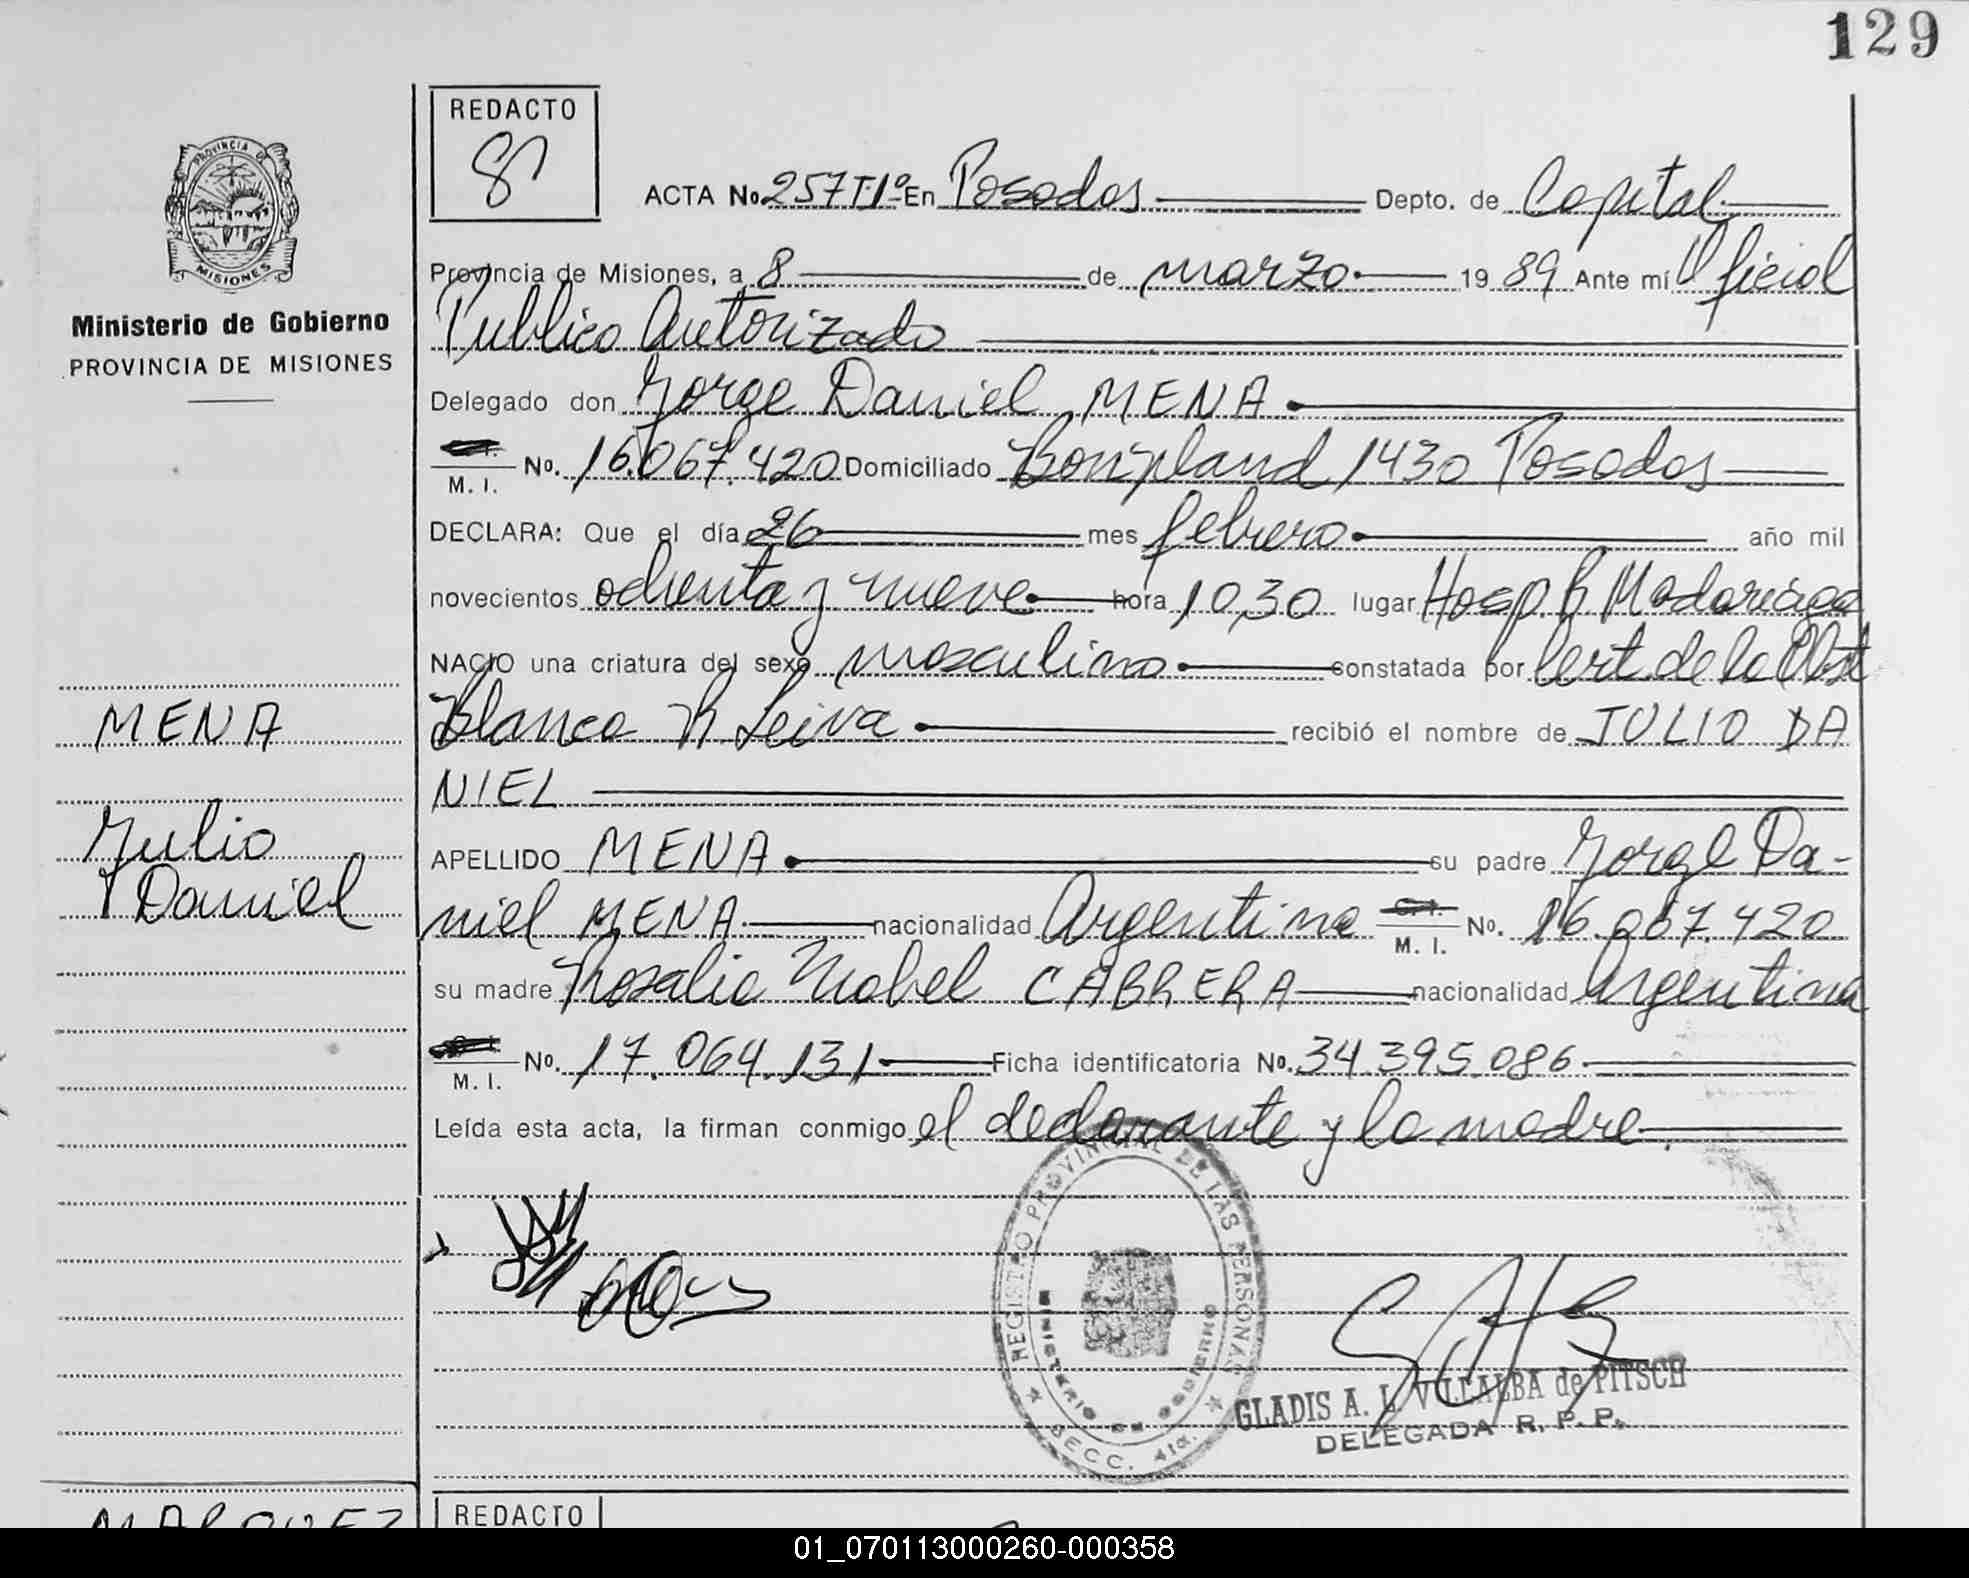 129
REDACTO
PROVINCIA DE
MISIONES
Ministerio de Gobierno
PROVINCIA DE MISIONES
ACTA No. 257 T1º En Posadas Depto. de Capital
Provincia de Misiones, a 8 de marzo 1989 Ante mí Oficial
Publico Autorizado
Delegado don Jorge Daniel MENA
M. I. No. 16.067.420 Domiciliado Bonpland 1430 Posadas
DECLARA: Que el día 26 mes febrero año mil
novecientos ochenta y nueve hora 10,30 lugar Hosp. R Madariaga
NACIO una criatura del sexo masculino constatada por Cert. de la Obst
Blanca R. Leiva recibió el nombre de JULIO DA
NIEL
APELLIDO MENA su padre Jorge Da-
niel MENA nacionalidad Argentina M. I. No. 16.067.420
su madre Rosalia Mabel CABRERA nacionalidad Argentina
M. I. No. 17.064.131 Ficha identificatoria No. 34.395.086
Leída esta acta, la firman conmigo el declarante y la madre.
MENA
Julio
Daniel
REGISTRO PROVINCIAL DE LAS PERSONAS
MINISTERIO DE GOBIERNO
SECC. 4ta.
GLADIS A. L. VILLALBA de PITSCH
DELEGADA R. P. P.
MARQUEZ
REDACTO
01_070113000260-000358